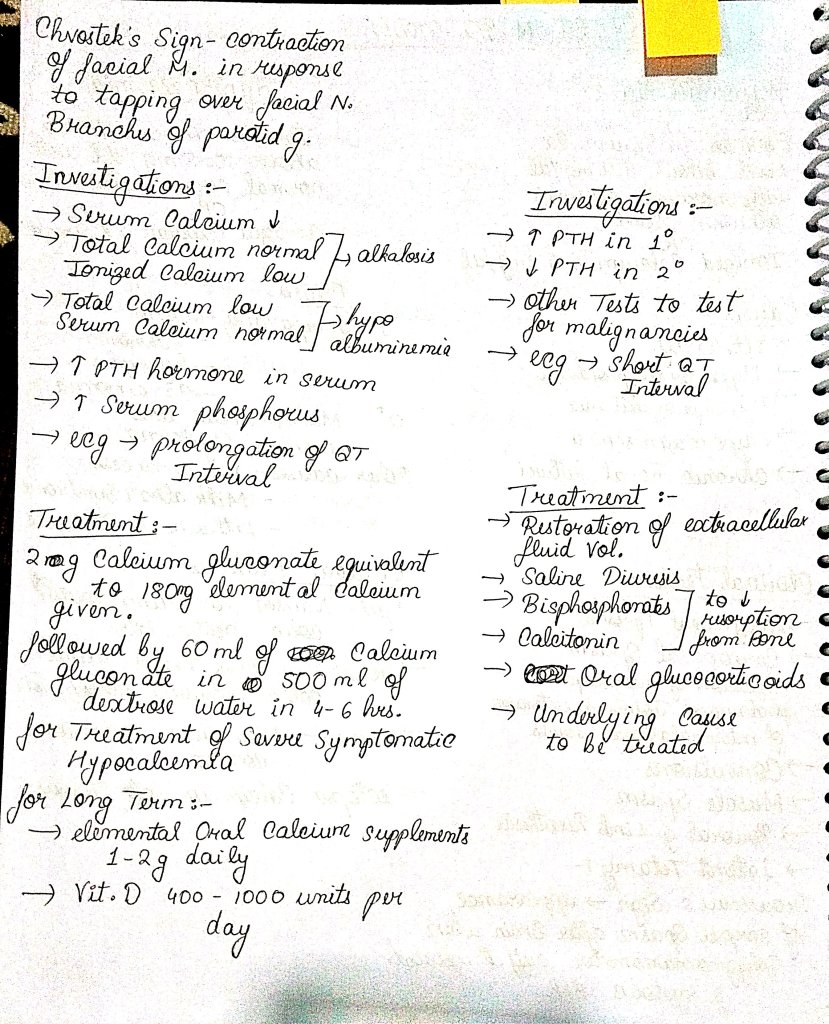 Chvostek's Sign - contraction
of facial M. in response
to tapping over facial N.
Branches of parotid g.
Investigations :-
→ Serum Calcium ↓
→ Total Calcium normal
Ionized Calcium low
→ alkalosis
→ Total Calcium low
Serum Calcium normal
→ hypo
albuminemia
→ ↑ PTH hormone in serum
→ ↑ Serum phosphorus
→ ecg → prolongation of QT
Interval
Treatment :-
2mg Calcium gluconate equivalent
to 180mg elemental Calcium
given.
followed by 60 ml of Calcium
gluconate in 500 ml of
dextrose water in 4-6 hrs.
for Treatment of Severe Symptomatic
Hypocalcemia
for Long Term :-
→ elemental Oral Calcium supplements
1-2g daily
→ Vit. D 400 - 1000 units per
day
Investigations :-
→ ↑ PTH in 1°
→ ↓ PTH in 2°
→ Other Tests to test
for malignancies
→ ecg → short QT
Interval
Treatment :-
→ Restoration of extracellular
fluid vol.
→ Saline Diuresis
→ Bisphosphonates
→ Calcitonin
to ↓
resorption
from Bone
→ Oral glucocorticoids
→ Underlying Cause
to be treated